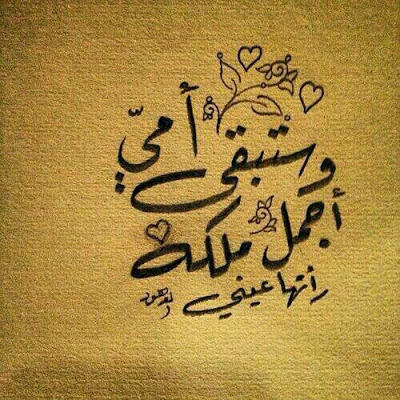 وستبقى أميّ
أجمل ملكه
رأتها عيني